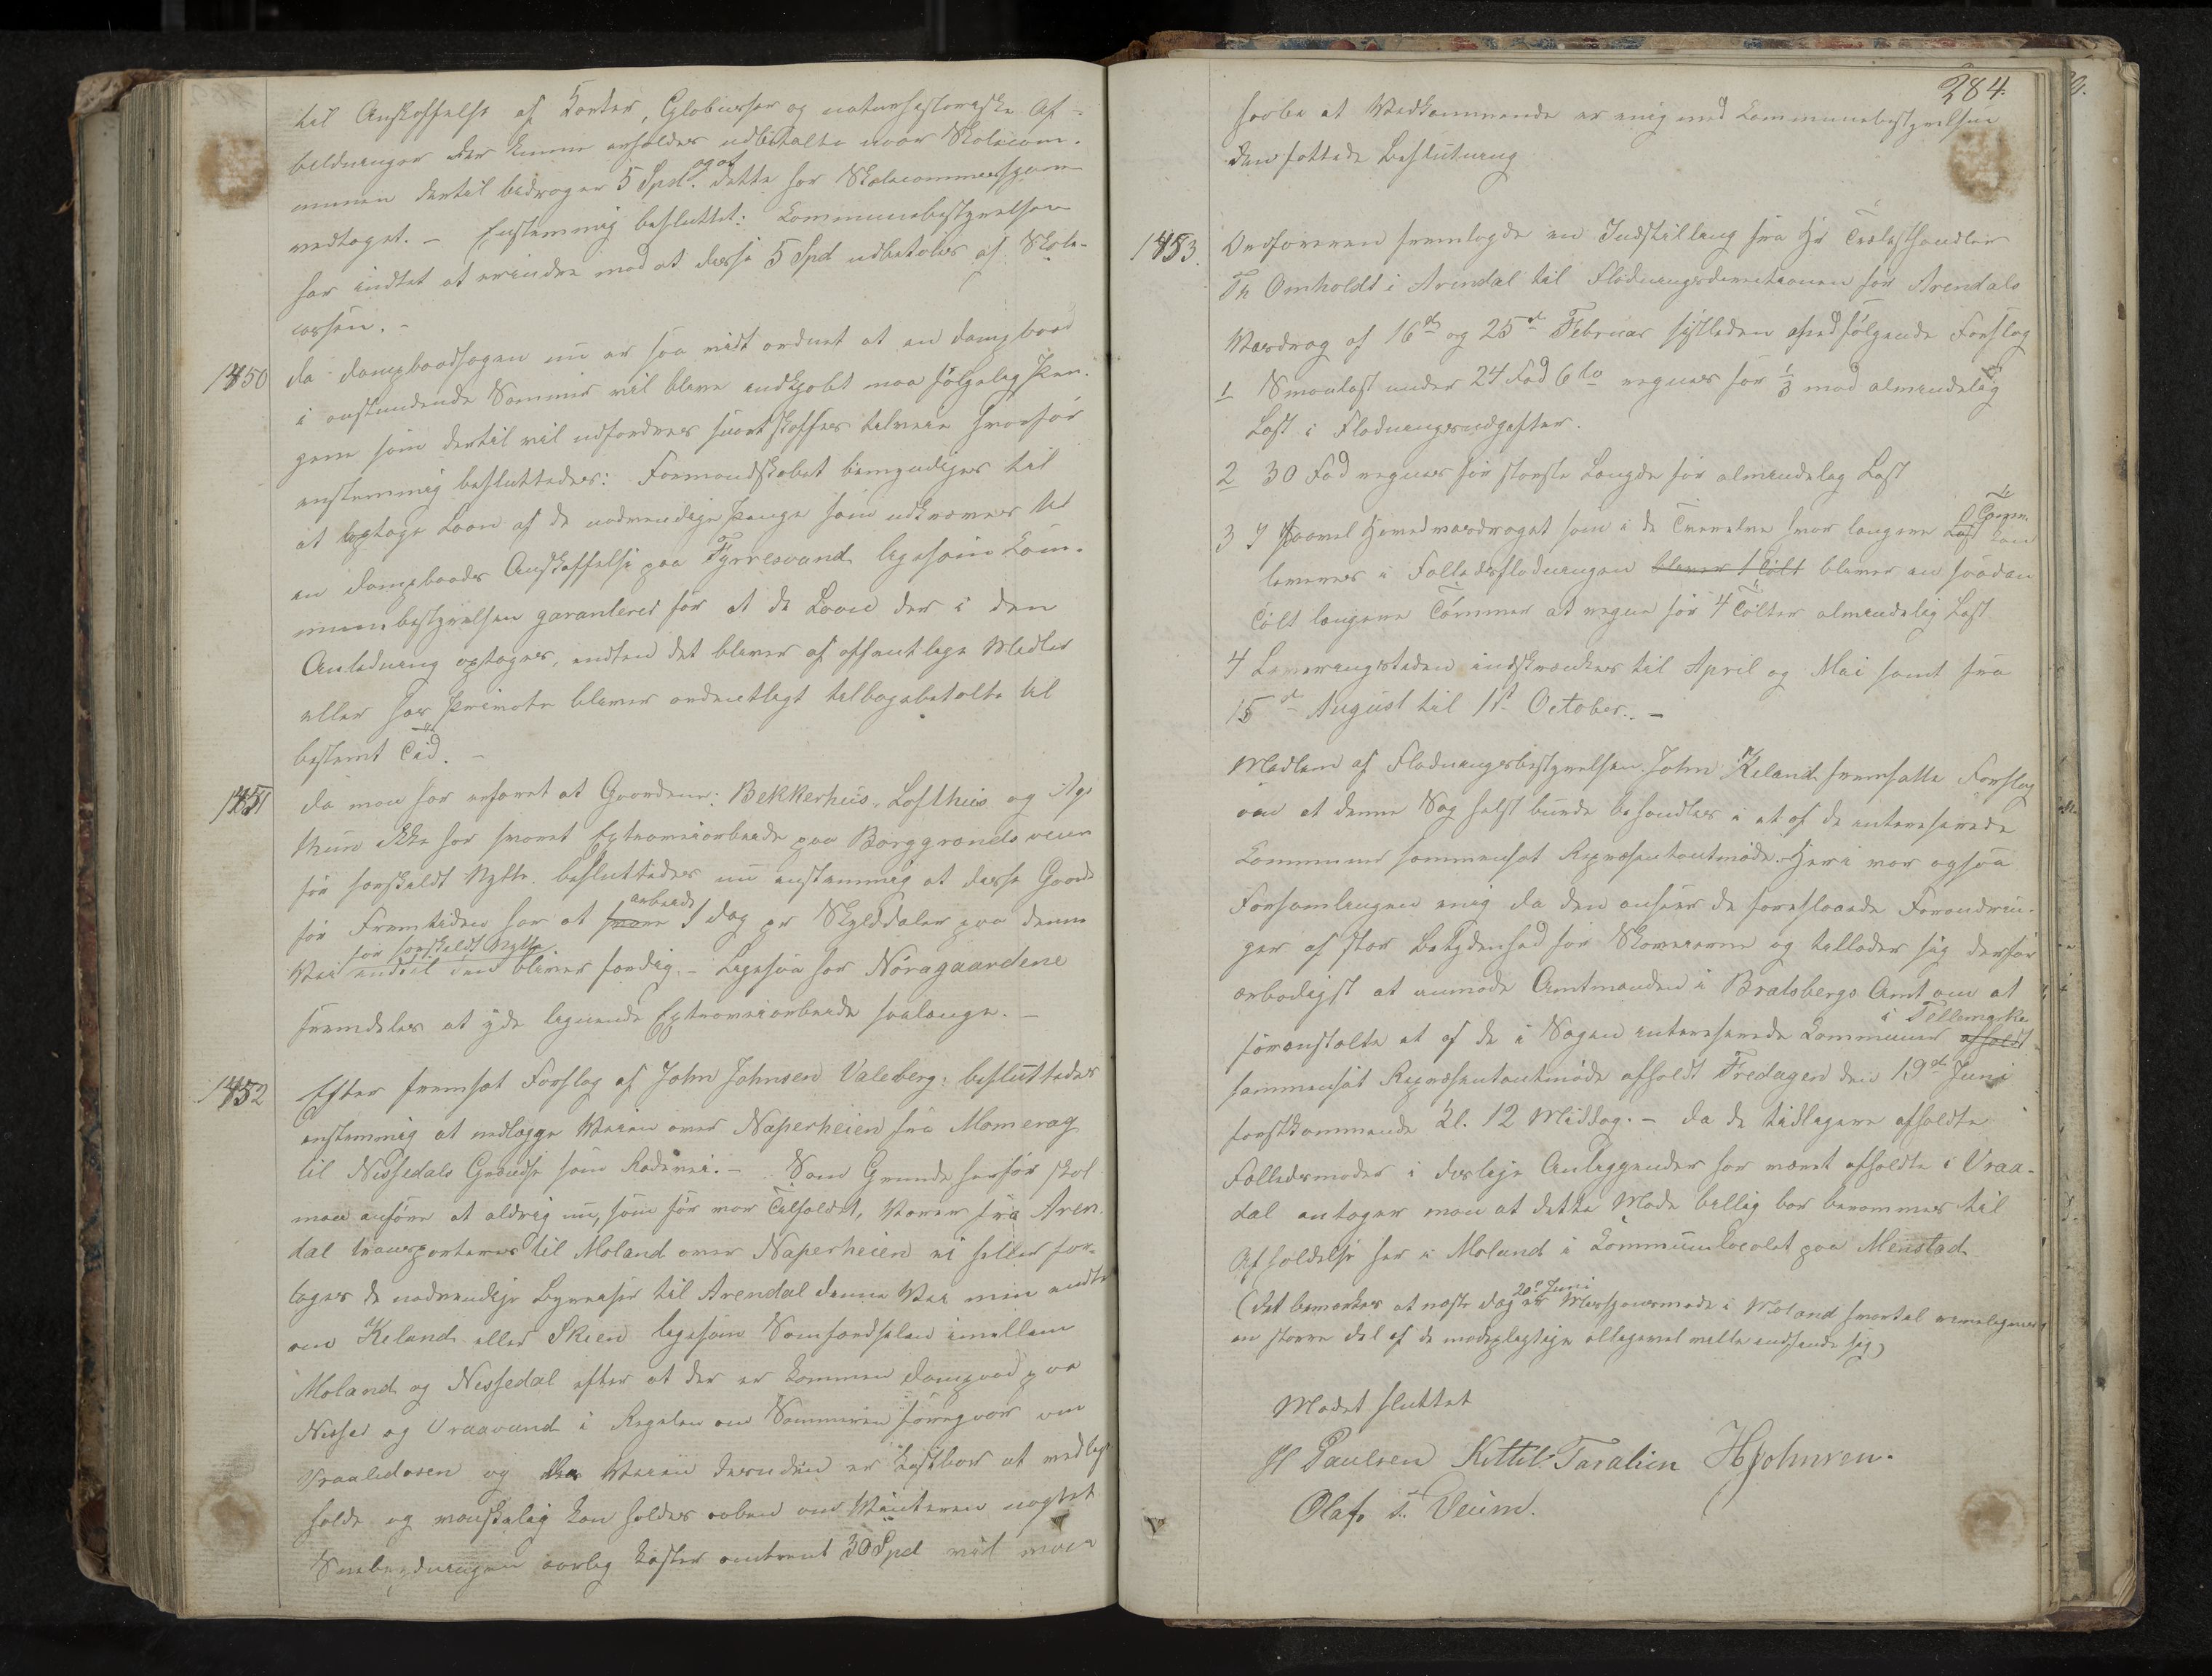 til Anskaffelse af Karter, Globusser og naturhistoriske Af-
bildninger der kunne erholdes udbetalte naar Skolecom-
munen dertil bidrager 5 Spd. og at dette har Skolecommissionen
vedtaget. – Enstemmig besluttet: Kommunebestyrelsen
har indtet at erindre mod at disse 5 Spd udbetales af Skole-
cassen. –
1450 Da Dampbaadsagen nu er saa vidt ordnet at en Dampbaad
i anstundende Sommer vil blive indkjøbt maa følgelig Pen-
gene som dertil vil udfordres snart skaffes tilveie hvorfor
enstemmig besluttedes: Formandskabet bemyndiges til
at optage Laan af de nødvendige Penge som udkræves til
en Dampbaads Anskaffelse paa Fyrresvand ligesom Kom-
munebestyrelsen garanterer for at de Laan der i den
Anledning optages, endten det bliver af offentlige Midler
eller hos Private bliver ordentligt tilbagebetalte til
bestemt Tid. –
1451 Da man har erfaret at Gaardene: Bekkerhus, Lofthuis og
ikke har svaret Extraveiarbeide paa Borggrands veien
for forskjeldt Nytte. besluttedes nu enstemmig at disse Gaarde
for Fremtiden har at svare arbeide 1 Dag pr Skylddaler paa denne
Vei for forskjeldt Nytte indtil den bliver færdig. – Ligesaa har Noragaardene
fremdeles at yde lignende Extraveiarbeide saalænge. –
1452 Efter fremsat Forslag af John Johnsen Valeberg: besluttedes
enstemmig at nedlægge Veien over Naperheien fra Momerag
til Nissedals Grændse som Rodevei. – Som Grunde herfor skal
man anføre at aldrig nu, som før var Tilfældet, Varer fra Aren-
dal transporteres til Moland over Naperheien ei heller fore-
tages de nødvendige Byreiser til Arendal denne Vei men endten
om Kiland eller Skien ligesom Samfærdselen imellem
Moland og Nissedal efter at der er kommen Dampbaad paa
Nisser og Vraavand i Regelen om Sommeren foregaar om
Vraaliosen og da Veien desuden er kostbar at vedlige-
holde og vanskelig kan holdes aaben om Vinteren
Snebrydningen aarlig koster omtrent 30 Spd vil man
284.
haabe at Vedkommende er enig med Kommunebestyrelsen
den fattede Beslutning
1453. Ordføreren fremlagde en Indstilling fra Hr Trælasthandler
Th Omholdt i Arendal til Flødningsdirectionen for Arendals
Vasdrag af 16de og 25de Februar sidstleden med følgende Forslag
1 Smaalast under 24 Fod 6 to regnes for 1/3 mod almindelig
Last i Flødningsudgifter.
2 30 Fod regnes for største Længde for almindelig Last
3 I saavel Hovedvasdraget som i de Tverelve hvor længere Last Tømmer kan
leveres i Fælledsflødningen bliver 1 Tolt bliver en saadan
Tolt længere Tømmer at regne for 4 Tolter almindelig Last
4 Leveringstiden indskrænkes til April og Mai samt fra
15de August til 1ste October. –
Medlem af Flødningsbestyrelsen John Kiland fremsatte Forslag
om at denne Sag helst burde behandles i et af de interesserede
Kommuner sammensat Repræsentantmøde. Heri var ogsaa
Forsamlingen enig da den anseer de foreslaaede Forandrin-
ger af stor Betydenhed for Skoveierne og tillader sig derfor
ærbødigst at anmode Amtmanden i Bratsbergs Amt om at
foranstalte et af de i Sagen interesserede Kommuner i Tellemarken afholdt
sammensat Repræsentantmøde afholdt Fredagen den 19de Juni
førstkommende Kl. 12 Middag. – Da de tidligere afholdte
Fælledsmøder i deslige Anliggender har været afholdte i Vraa-
dal antager man at dette Møde billig bør berammes til
Afholdelse her i Moland i Kommunlocalet paa Menstad
(det bemærkes at næste Dag 20de Juni er Mersponsmøde i Moland hvortil rimeligviis
en større Del af de mødepligtige alligevel ville indfinde sig)
Mødet sluttet
H Paulsen Kittil Taralsen HJohnsen.
Olaf T. Veum.